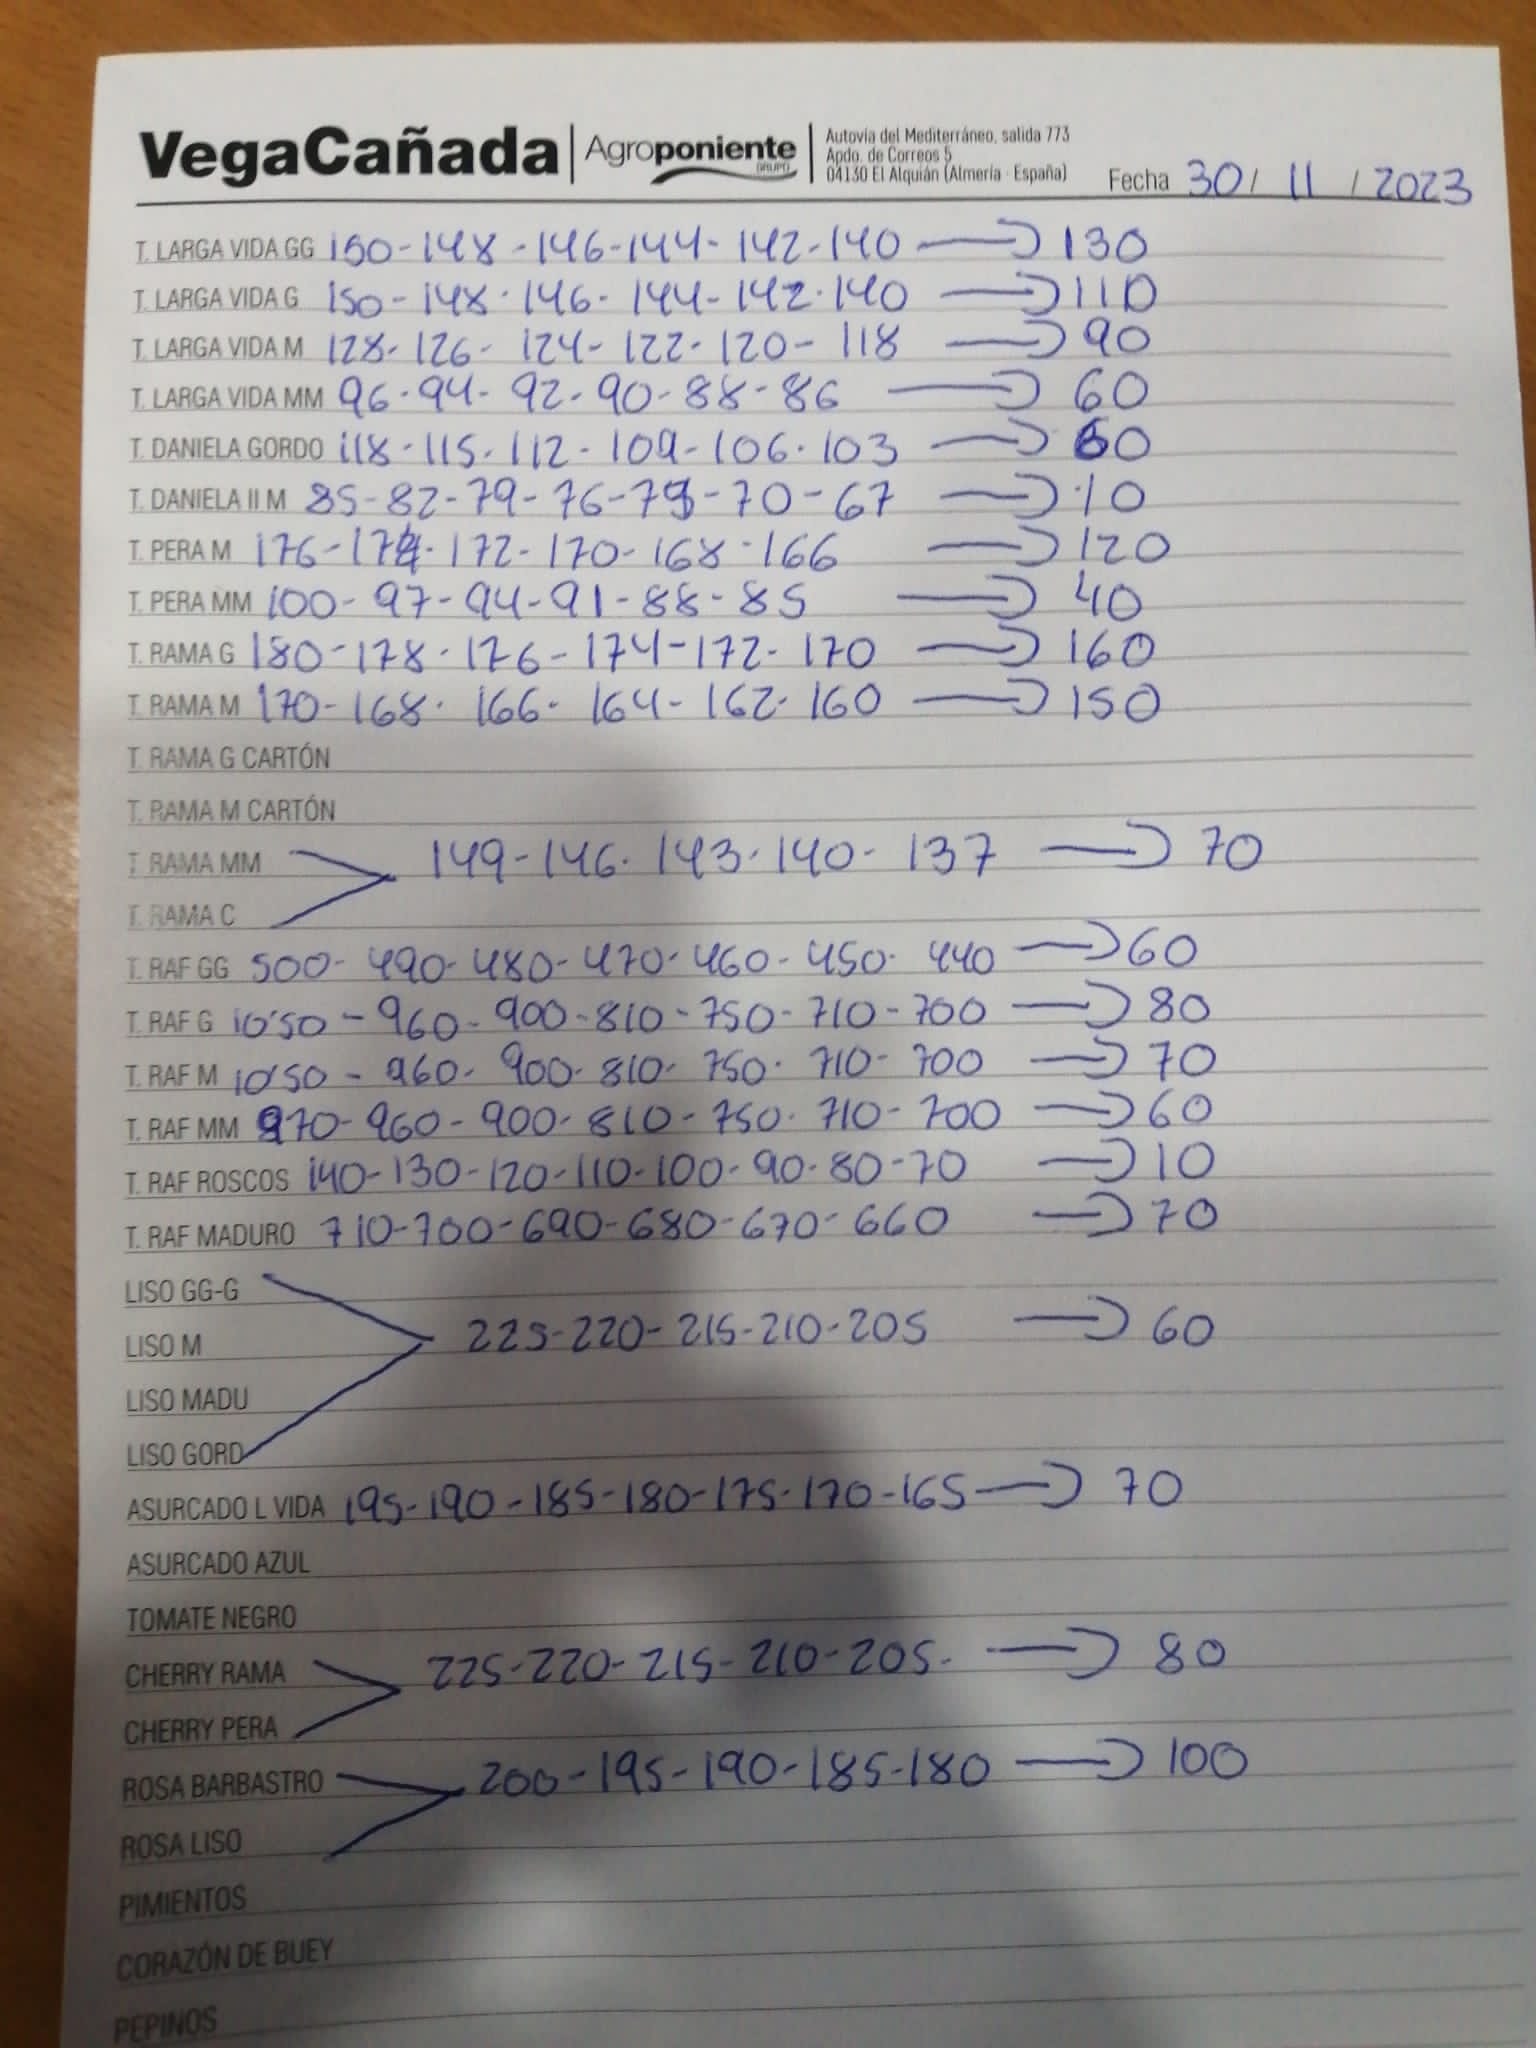 VegaCañada | Agroponiente GRUPO
Autovía del Mediterráneo, salida 773
Apdo. de Correos 5
04130 El Alquián (Almería - España)
Fecha 30 / 11 / 2023
T. LARGA VIDA GG 150-148-146-144-142-140 → 130
T. LARGA VIDA G 150-148-146-144-142-140 → 110
T. LARGA VIDA M 128-126-124-122-120-118 → 90
T. LARGA VIDA MM 96-94-92-90-88-86 → 60
T. DANIELA GORDO 118-115-112-109-106-103 →
T. DANIELA II M 85-82-79-76-73-70-67 → 10
T. PERA M 176-174-172-170-168-166 → 120
T. PERA MM 100-97-94-91-88-85 → 40
T. RAMA G 180-178-176-174-172-170 → 160
T. RAMA M 170-168-166-164-162-160 → 150
T. RAMA G CARTÓN
T. RAMA M CARTÓN
T. RAMA MM 149-146-143-140-137 → 70
T. RAMA C
T. RAF GG 500-490-480-470-460-450-440 → 60
T. RAF G 10'50-960-900-810-750-710-700 → 80
T. RAF M 10'50-960-900-810-750-710-700 → 70
T. RAF MM 970-960-900-810-750-710-700 → 60
T. RAF ROSCOS 140-130-120-110-100-90-80-70 → 10
T. RAF MADURO 710-700-690-680-670-660 → 70
LISO GG-G
LISO M 225-220-215-210-205 → 60
LISO MADU
LISO GORD
ASURCADO L VIDA 195-190-185-180-175-170-165 → 70
ASURCADO AZUL
TOMATE NEGRO
CHERRY RAMA 225-220-215-210-205- → 80
CHERRY PERA
ROSA BARBASTRO 200-195-190-185-180 → 100
ROSA LISO
PIMIENTOS
CORAZÓN DE BUEY
PEPINOS